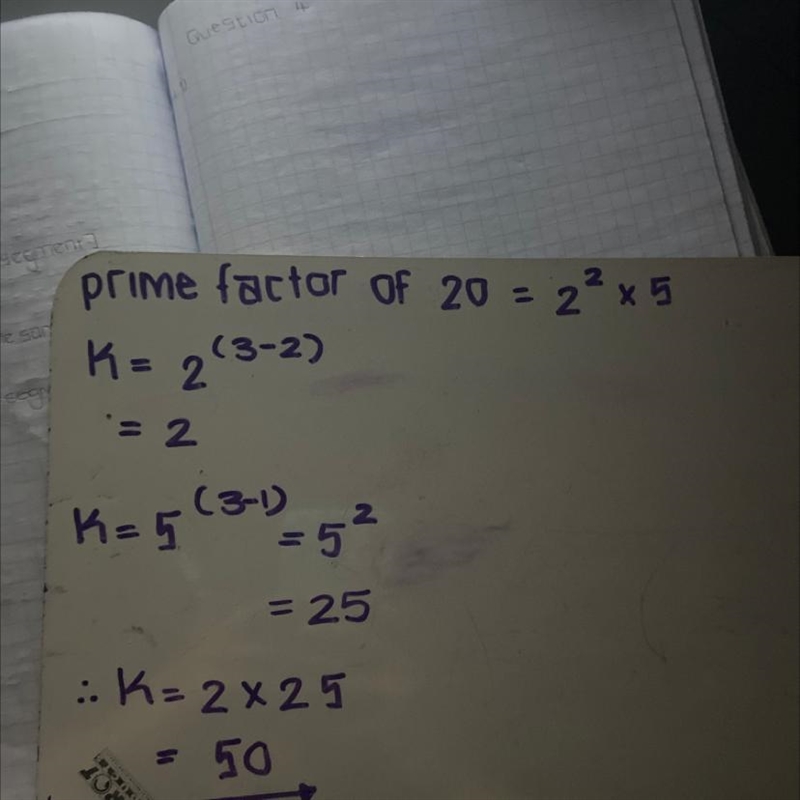 Question 4
segment]
prime factor of 20 = 2² × 5
K = 2⁽³⁻²⁾
= 2
K = 5⁽³⁻¹⁾ = 5²
= 25
∴ K = 2 × 25
= 50